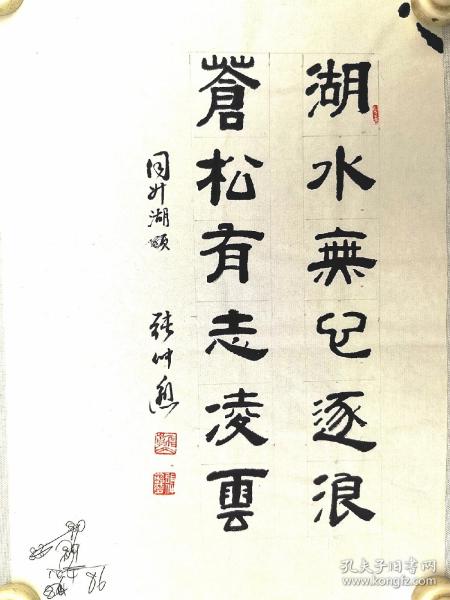 湖水無心逐浪
蒼松有志凌雲
同升湖
張
86
孔夫子旧书网
www.kongfz.com